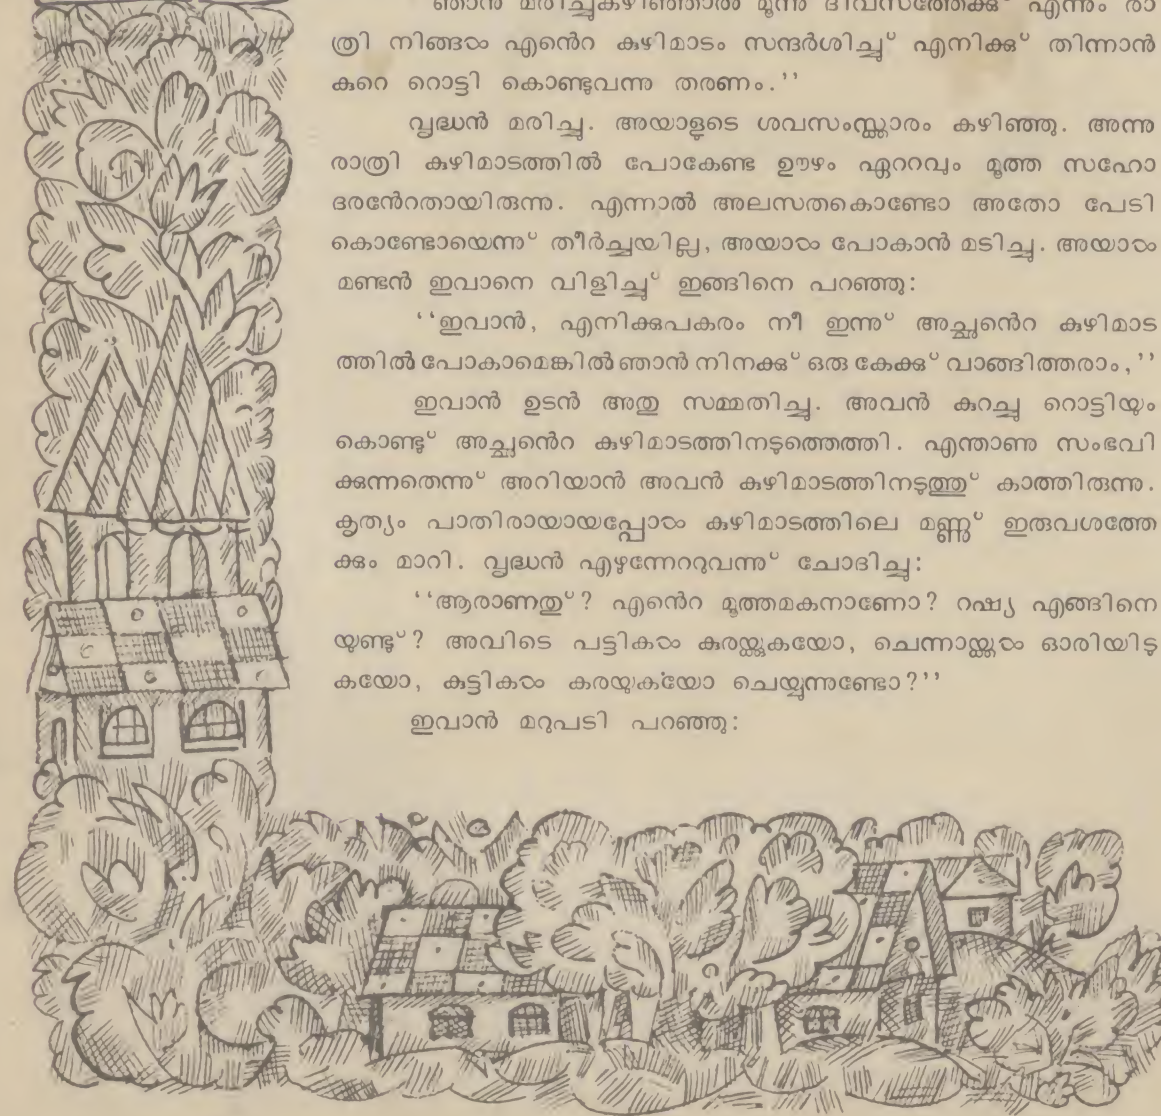 ഞാൻ മരിച്ചുകഴിഞ്ഞാൽ മൂന്നു ദിവസത്തേക്കു് എന്നും രാ
ത്രി നിങ്ങൾ എൻെറ കുഴിമാടം സന്ദർശിച്ചു് എനിക്കു് തിന്നാൻ
കുറെ റൊട്ടി കൊണ്ടുവന്നു തരണം.''
വൃദ്ധൻ മരിച്ചു. അയാളുടെ ശവസംസ്ക്കാരം കഴിഞ്ഞു. അന്നു
രാത്രി കുഴിമാടത്തിൽ പോകേണ്ട ഊഴം ഏററവും മൂത്ത സഹോ
ദരൻേറതായിരുന്നു. എന്നാൽ അലസതകൊണ്ടോ അതോ പേടി
കൊണ്ടോയെന്നു് തീർച്ചയില്ല, അയാൾ പോകാൻ മടിച്ചു. അയാൾ
മണ്ടൻ ഇവാനെ വിളിച്ചു് ഇങ്ങിനെ പറഞ്ഞു:
''ഇവാൻ, എനിക്കുപകരം നീ ഇന്നു് അച്ഛൻെറ കുഴിമാട
ത്തിൽ പോകാമെങ്കിൽ ഞാൻ നിനക്കു് ഒരു കേക്കു് വാങ്ങിത്തരാം,''
ഇവാൻ ഉടൻ അതു സമ്മതിച്ചു. അവൻ കുറച്ചു റൊട്ടിയും
കൊണ്ടു് അച്ഛൻെറ കുഴിമാടത്തിനടുത്തെത്തി. എന്താണു സംഭവി
ക്കുന്നതെന്നു് അറിയാൻ അവൻ കുഴിമാടത്തിനടുത്തു് കാത്തിരുന്നു.
കൃത്യം പാതിരായായപ്പോൾ കുഴിമാടത്തിലെ മണ്ണു് ഇരുവശത്തേ
ക്കും മാറി. വൃദ്ധൻ എഴുന്നേററുവന്നു് ചോദിച്ചു:
''ആരാണതു്? എൻെറ മൂത്തമകനാണോ? റഷ്യ എങ്ങിനെ
യുണ്ടു്? അവിടെ പട്ടികൾ കുരയ്ക്കുകയോ, ചെന്നായ്ക്കൾ ഓരിയിടു
കയോ, കുട്ടികൾ കരയുകയോ ചെയ്യുന്നുണ്ടോ?''
ഇവാൻ മറുപടി പറഞ്ഞു: